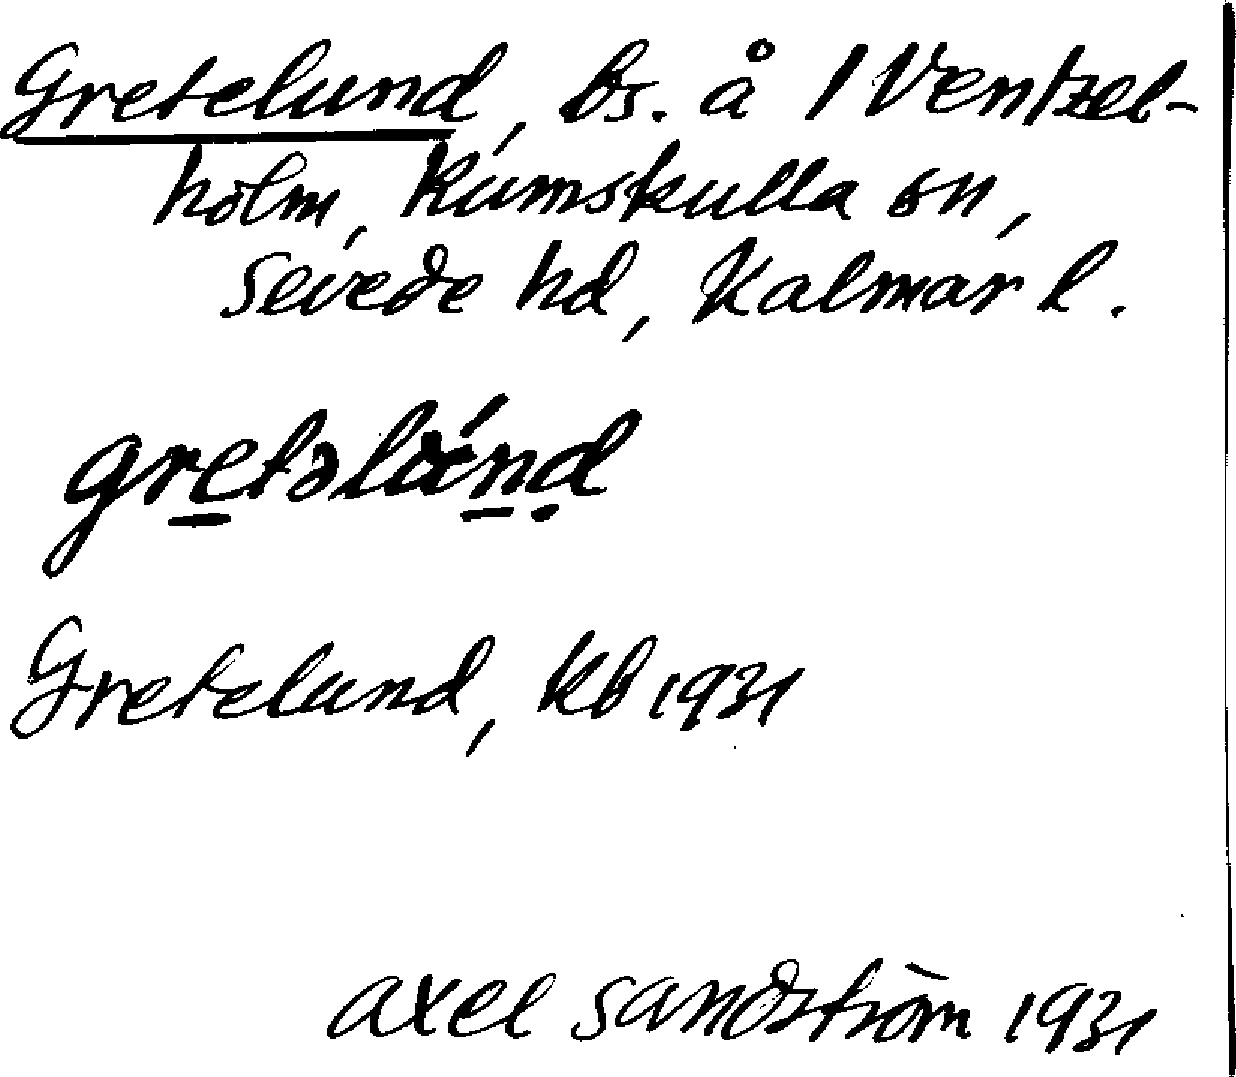 Gretelund, bs. å 1 Ventzel-
holm, Rumskulla sn,
Sevede hd, Kalmar l.
gretəlánd
Gretelund, kb 1931
Axel Sandström 1931